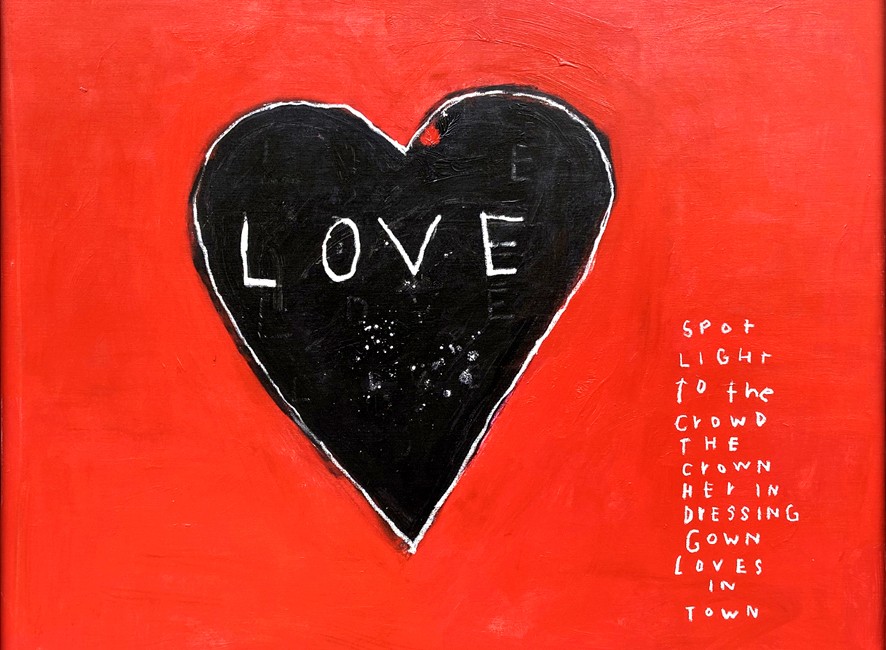 LOVE
SPOt
LIGHt
TO the
CrOWD
THE
CrOWN
HEr IN
DrESSING
GOWN
LOVES
IN
TOWN